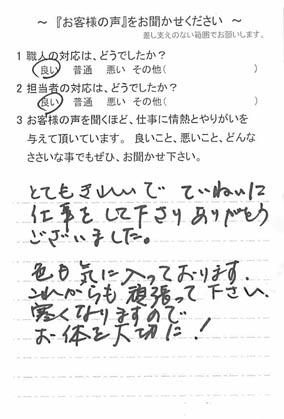 ～『お客様の声』をお聞かせください～
差し支えのない範囲でお願いします。
1 職人の対応は、どうでしたか？
良い 普通 悪い その他( )
2 担当者の対応は、どうでしたか？
良い 普通 悪い その他( )
3 お客様の声を聞くほど、仕事に情熱とやりがいを
与えて頂いています。良いこと、悪いこと、どんな
ささいな事でもぜひ、お聞かせ下さい。
とてもきれいで ていねいに
仕事をして下さりありがとう
ございました。
色も気に入っております。
これからも頑張って下さい。
寒くなりますので
お体を大切に！